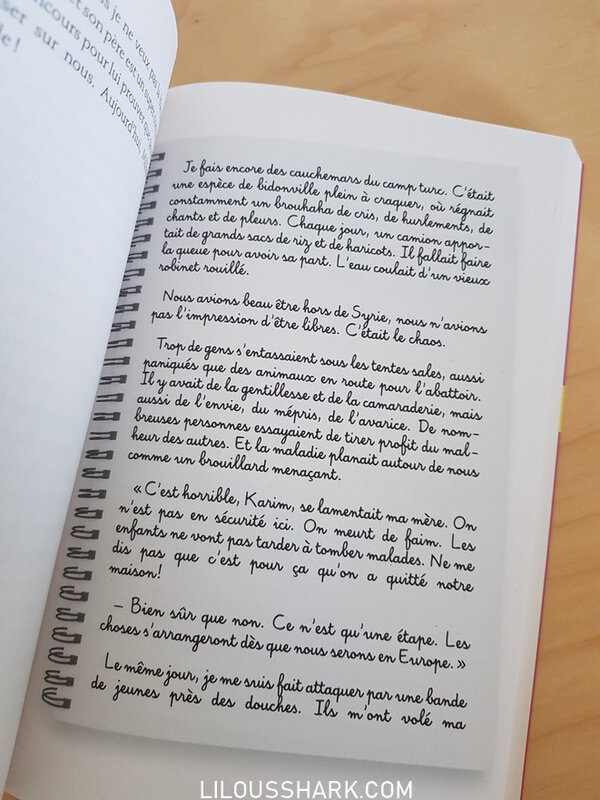 s je ne veux pas
et son père est un
concours pour lui prouver que
ser sur nous. Aujourd'hui,
le !
Je fais encore des cauchemars du camp turc. C'était
une espèce de bidonville plein à craquer, où régnait
constamment un brouhaha de cris, de hurlements, de
chants et de pleurs. Chaque jour, un camion appor-
tait de grands sacs de riz et de haricots. Il fallait faire
la queue pour avoir sa part. L'eau coulait d'un vieux
robinet rouillé.
Nous avions beau être hors de Syrie, nous n'avions
pas l'impression d'être libres. C'était le chaos.
Trop de gens s'entassaient sous les tentes sales, aussi
paniqués que des animaux en route pour l'abattoir.
Il y avait de la gentillesse et de la camaraderie, mais
aussi de l'envie, du mépris, de l'avarice. De nom-
breuses personnes essayaient de tirer profit du mal-
heur des autres. Et la maladie planait autour de nous
comme un brouillard menaçant.
« C'est horrible, Karim, se lamentait ma mère. On
n'est pas en sécurité ici. On meurt de faim. Les
enfants ne vont pas tarder à tomber malades. Ne me
dis pas que c'est pour ça qu'on a quitté notre
maison!
– Bien sûr que non. Ce n'est qu'une étape. Les
choses s'arrangeront dès que nous serons en Europe. »
Le même jour, je me suis fait attaquer par une bande
de jeunes près des douches. Ils m'ont volé ma
LILOUSSHARK.COM